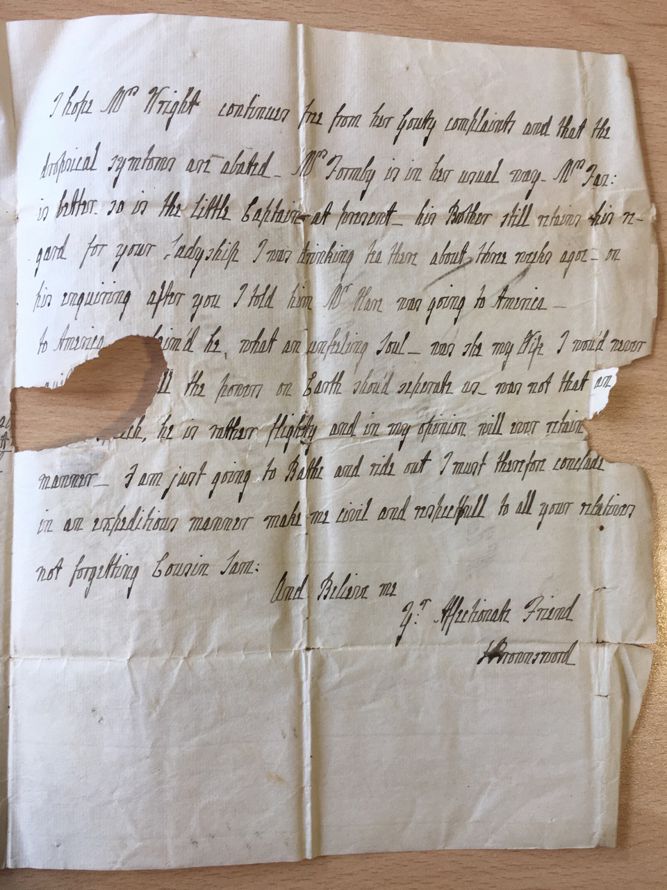 I hope Mrs Wright continues free from her Gouty complaints and that the
dropsical symtoms are abated_ Mrs Formby is in her usual way_ Mrs Jas:
is better_ so is the little Captain at present_ his Bother still retains his re-
gard for your Ladyship I was drinking tea there about three weeks agoe_ on
his enquiring after you I told him Mr Hare was going to America_
to America claim'd he, what an unfeeling Soul_ was she my Wife I wou'd never
all the powers on Earth shou'd seperate us_ was not that an
he is rather flighty and in my opinion will ever retain
manner_ I am just going to Bathe and ride out I must therefore conclude
in an expeditious manner make me civil and respectfull to all your relations
not forgetting Cousin Sam:
And Believe me
Yr Affectionate Friend
Brownsword